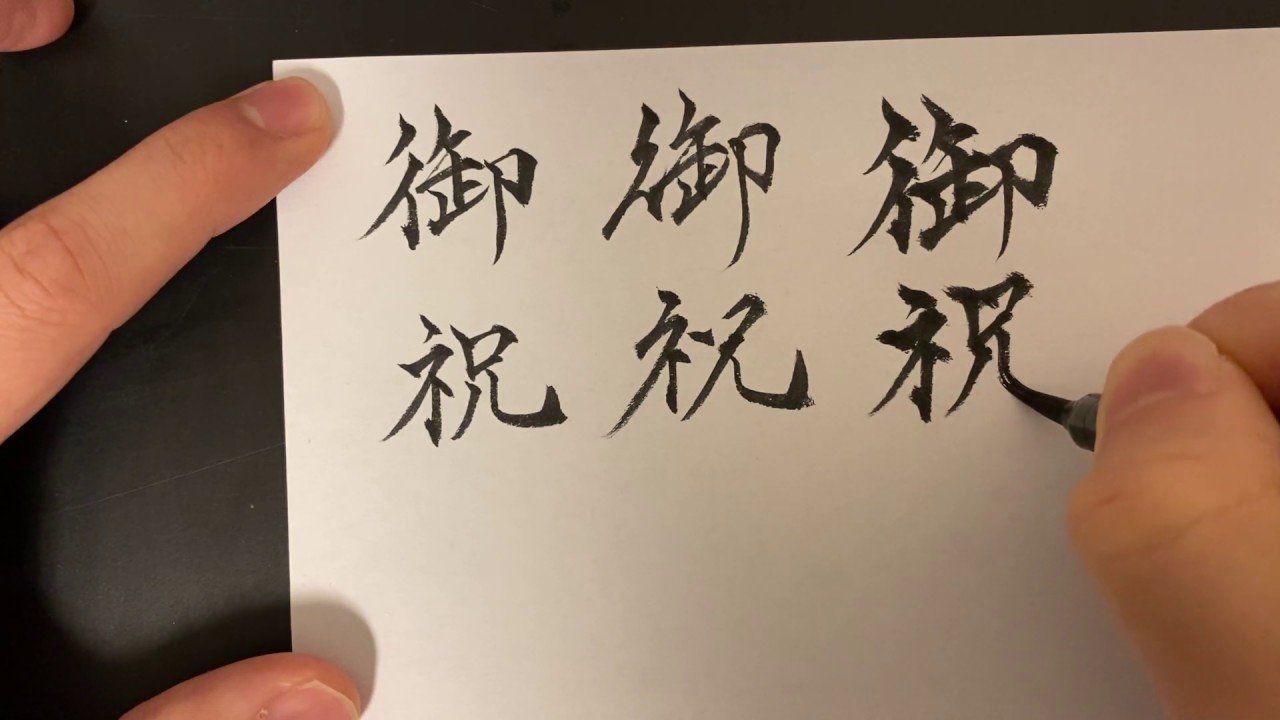 御 御 御
祝 祝 祝